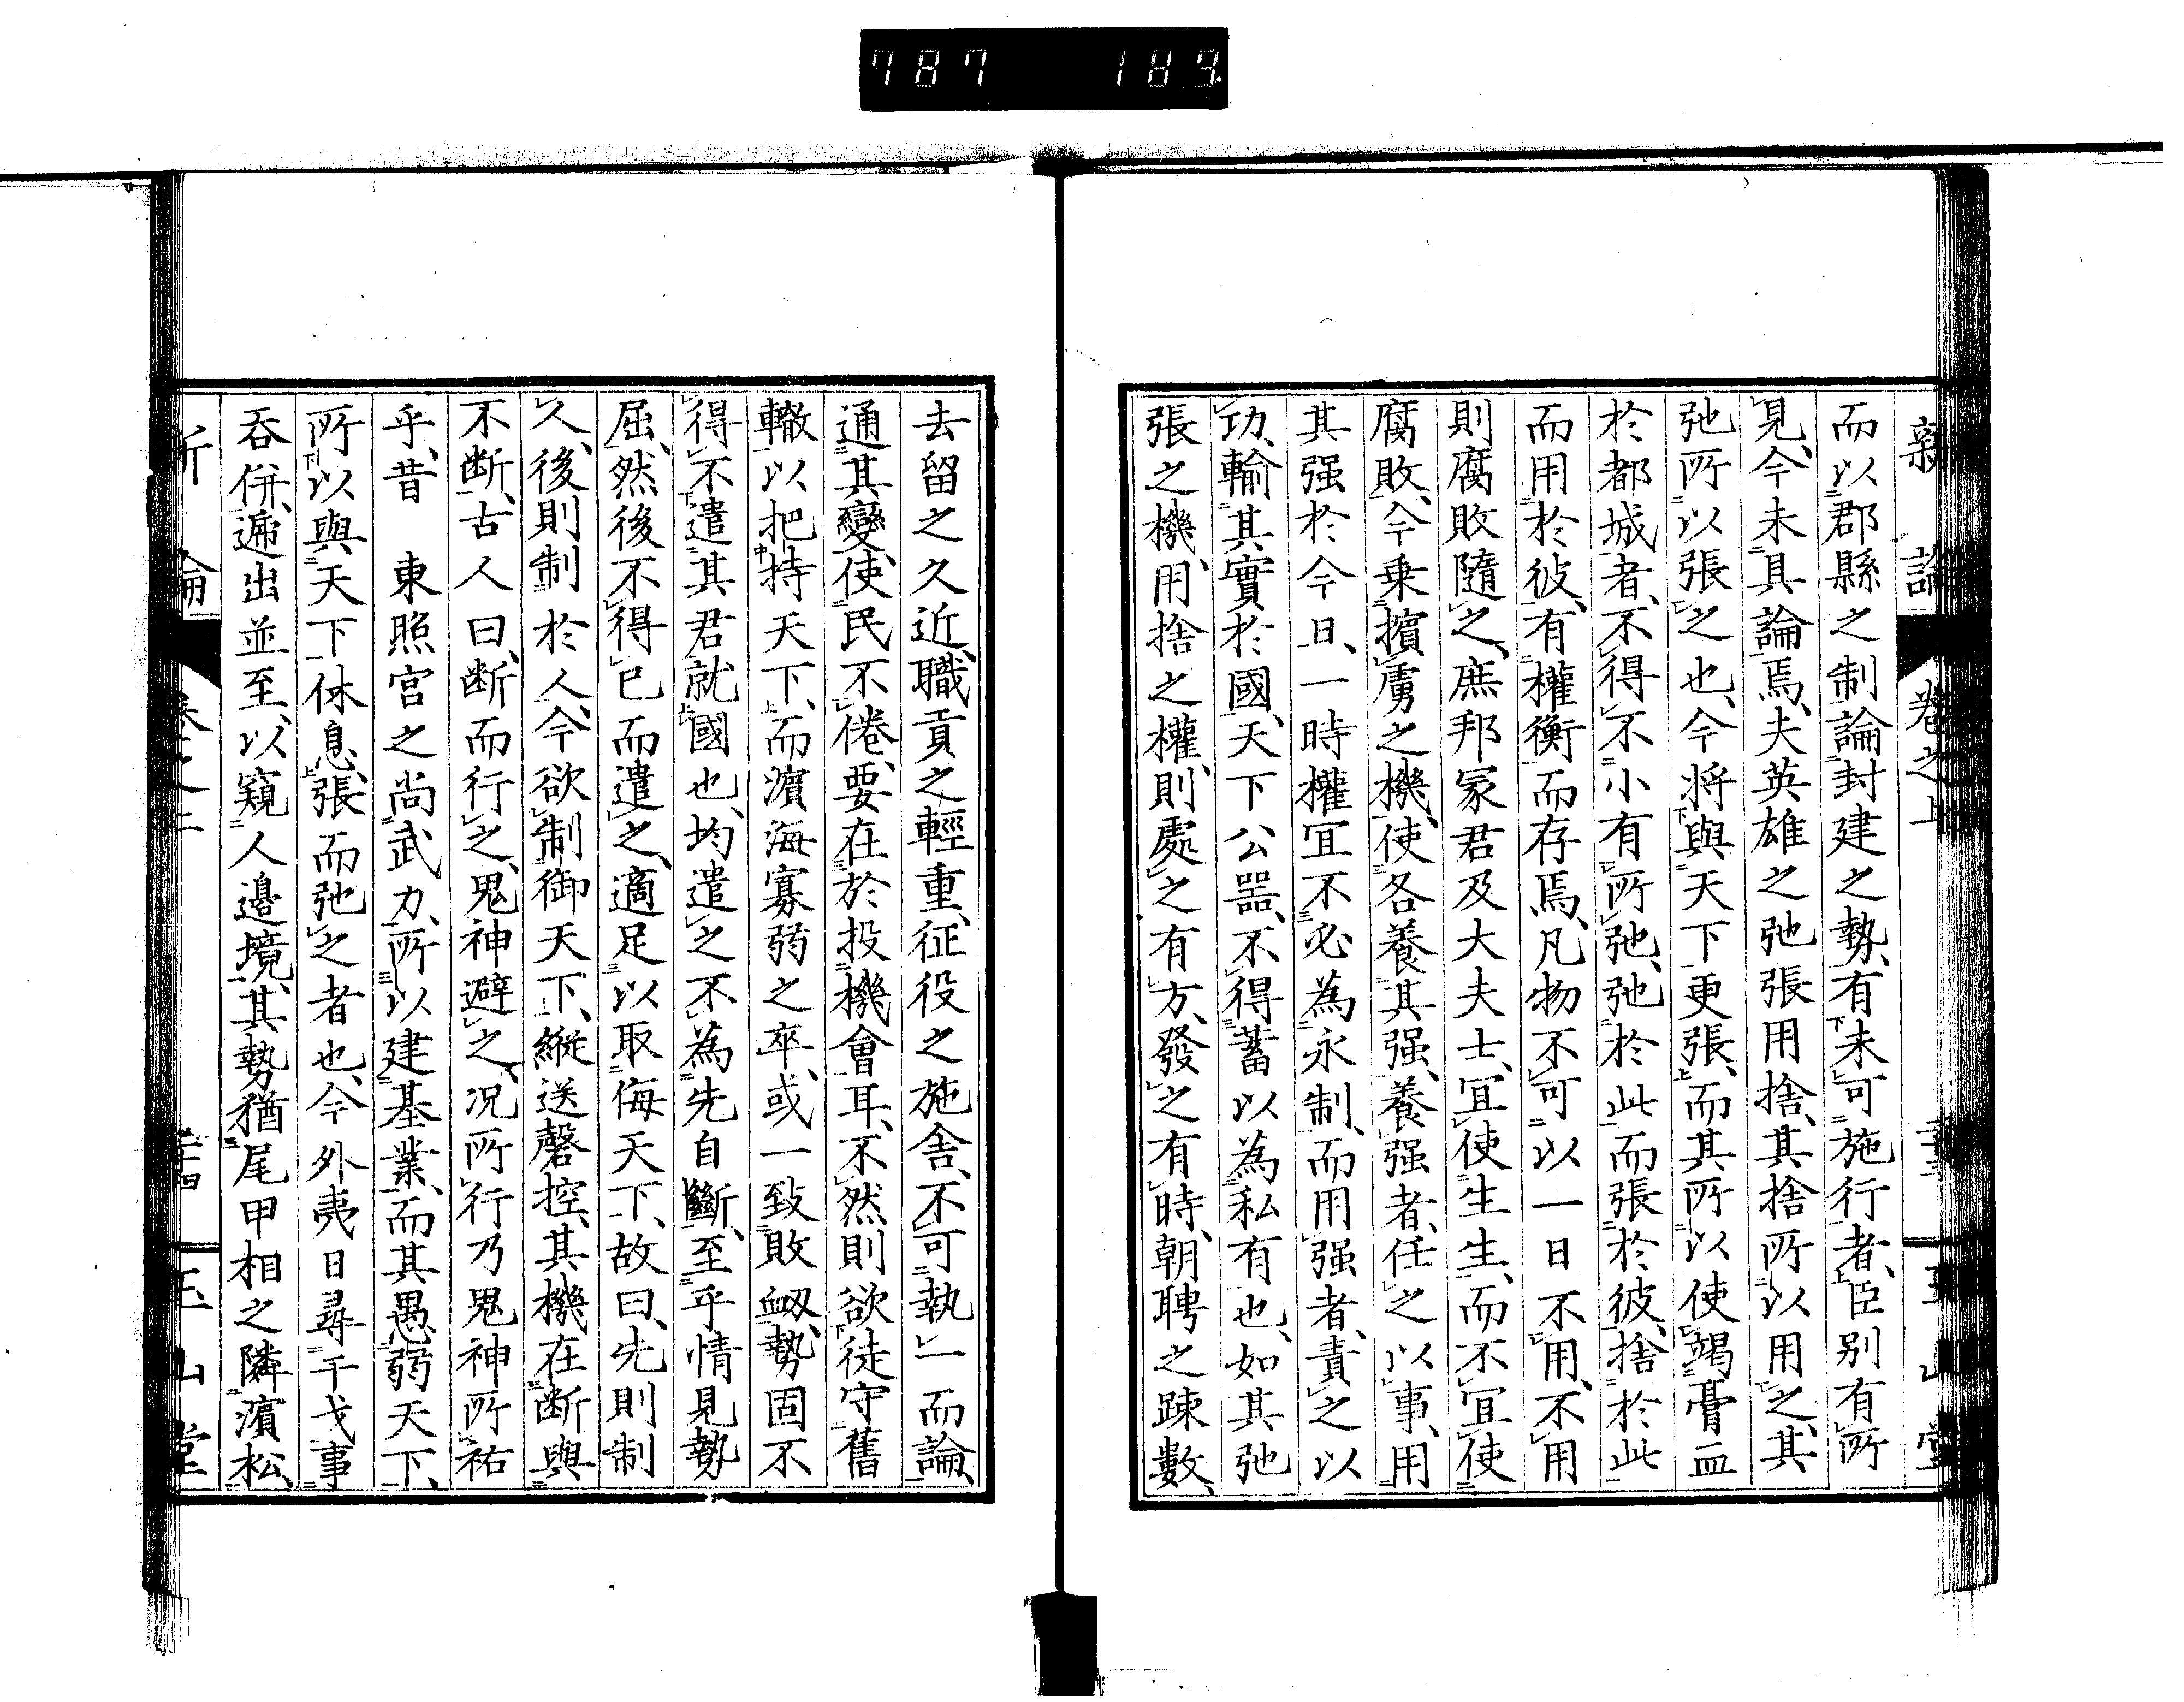 787 189.
新論 卷之上 玉山堂
而以郡縣之制論封建之勢、有未可施行者、臣别有所
見、今未具論焉、夫英雄之弛張用捨、其捨所以用之、其
弛所以張之也、今将與天下更張、而其所以使竭膏血
於都城者、不得不小有所弛、弛於此而張於彼、捨於此
而用於彼、有權衡而存焉、凡物不可以一日不用、不用
則腐敗隨之、庶邦冢君及大夫士、宜使生生、而不宜使
腐敗、今乗擯虜之機、使各養其强、養强者、任之以事、用
其强於今日、一時權宜不必為永制、而用强者、責之以
功、輸其實於國、天下公器、不得蓄以為私有也、如其弛
張之機、用捨之權、則處之有方、發之有時、朝聘之踈數、
去留之久近、職貢之輕重、征役之施舎、不可執一而論、
通其變、使民不倦、要在於投機會耳、不然則欲徒守舊
轍以把持天下、而濵海寡弱之卒、或一致敗衂、勢固不
得不遣其君就國也、均遣之、不為先自斷、至乎情見勢
屈、然後不得已而遣之、適足以取侮天下、故曰、先則制
人、後則制於人、今欲制御天下、縦送磬控、其機在断與
不断、古人曰、断而行之、鬼神避之、况所行乃鬼神所祐
乎、昔 東照宮之尚武力、所以建基業、而其愚弱天下、
所以與天下休息、張而弛之者也、今外夷日尋干戈事
吞併、遞出並至、以窺人邊境、其勢猶尾甲相之隣濵松、
論 玉山堂